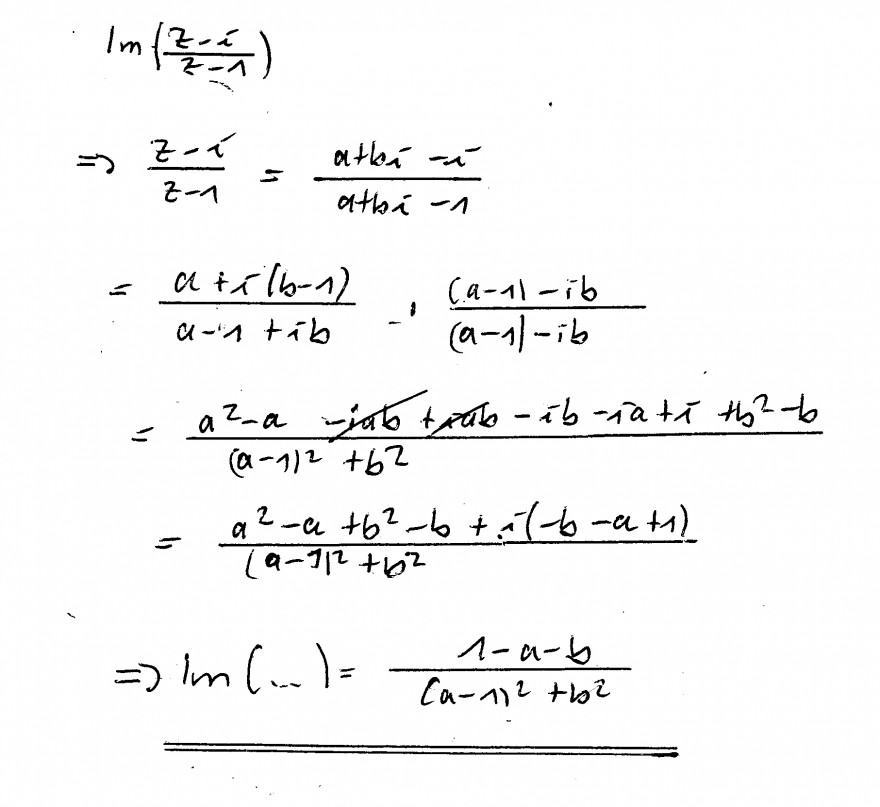 Im(z-i/z-1)
=> z-i/z-1 = a+bi-i/a+bi-1
= a+i(b-1)/a-1+ib · (a-1)-ib/(a-1)-ib
= a²-a -iab +iab -ib -ia +i +b²-b/(a-1)²+b²
= a²-a+b²-b+i(-b-a+1)/(a-1)²+b²
=> Im(...) = 1-a-b/(a-1)²+b²